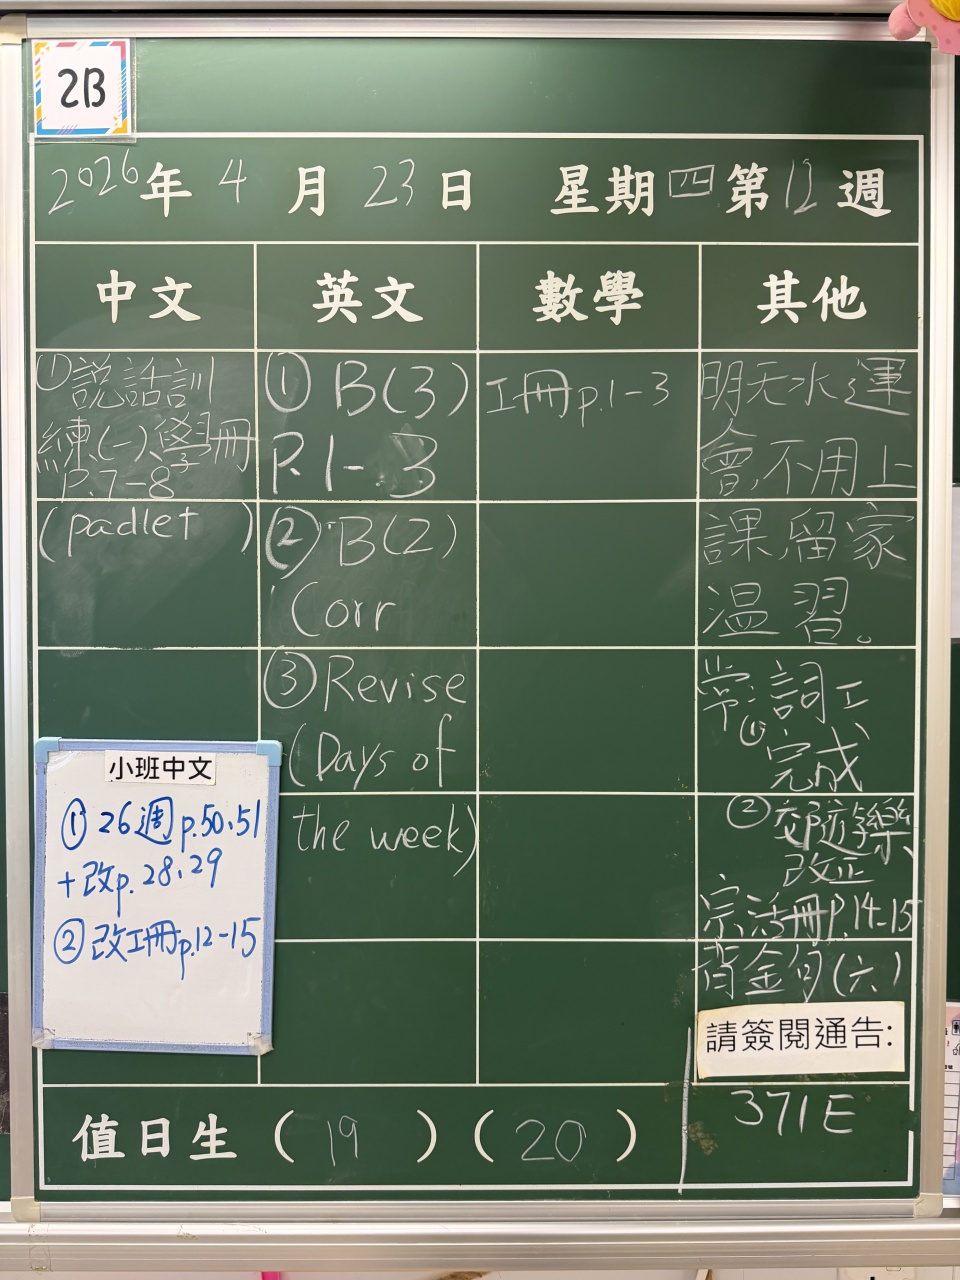 2B
2026年 4月 23日 星期四 第12週
中文
①說話訓
練(一)、學冊
P.7-8
(padlet )
小班中文
① 26週 p.50、51
+改p.28、29
② 改工冊p.12-15
英文
① B(3)
P.1-3
② B(2)
Corr
③ Revise
(Days of
the week)
數學
工冊p.1-3
其他
明天水運
會,不用上
課,留家
温習。
常:詞工
① 完成
② 改正
宗活冊P.14-15
背金句(六)
請簽閱通告:
371E
值日生 (19) (20)